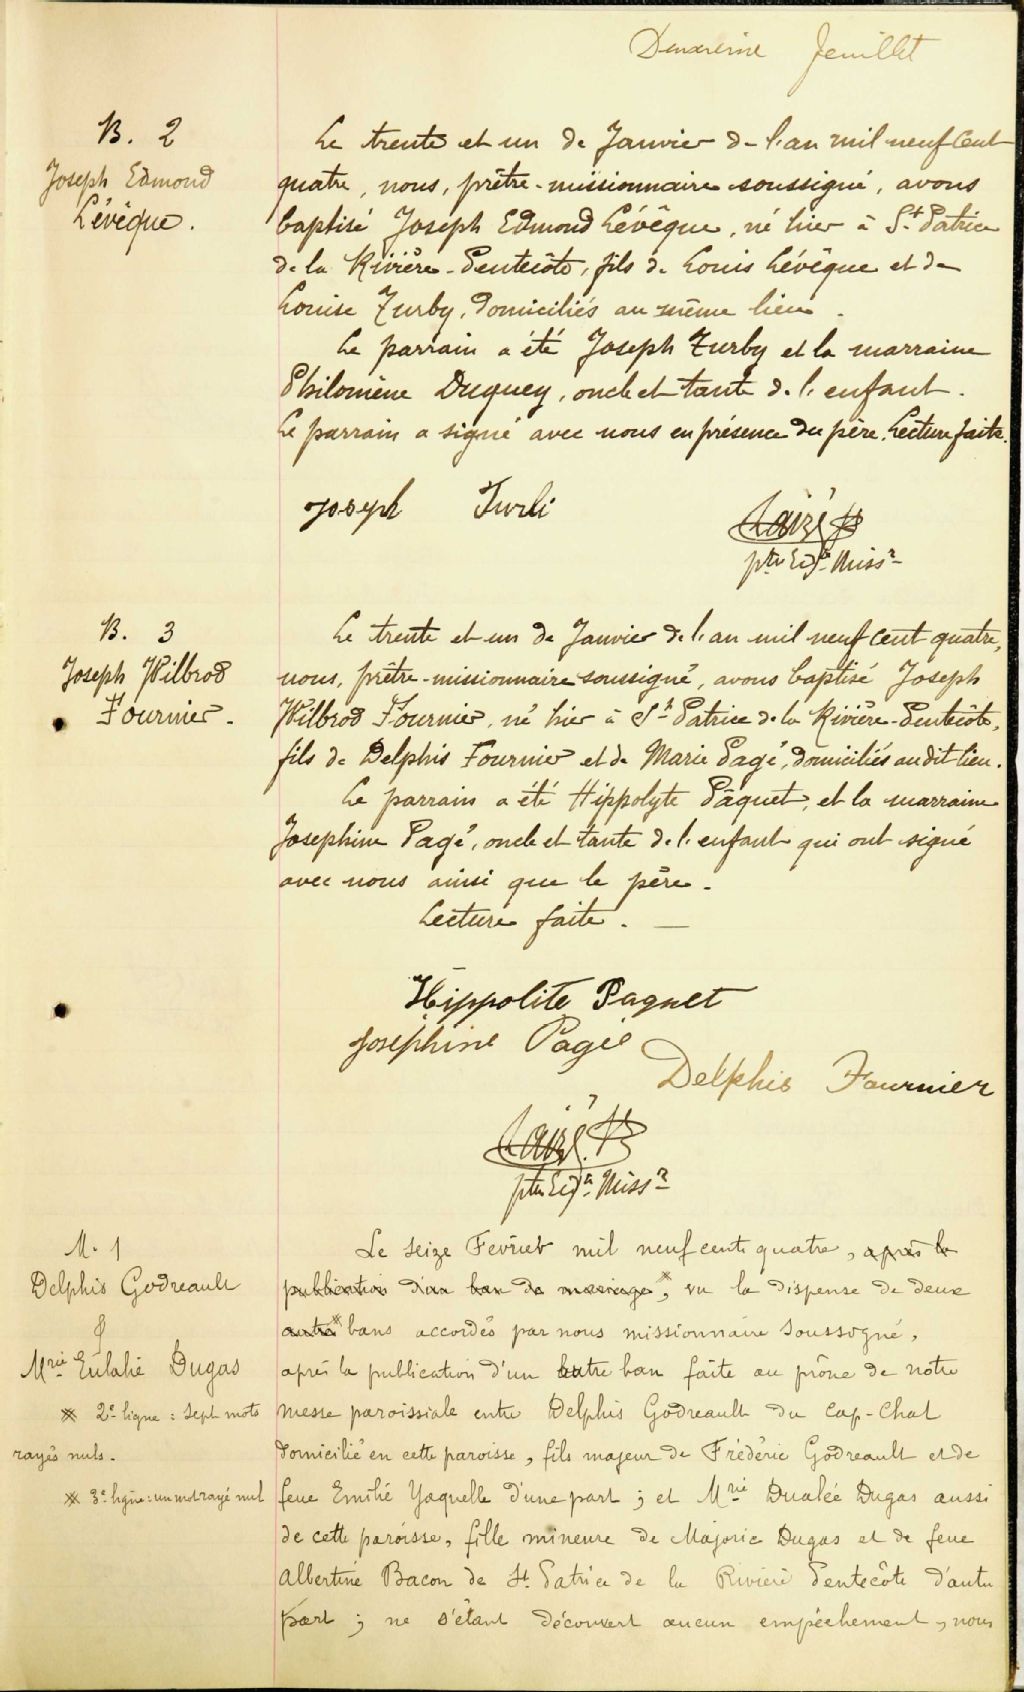 Deuxième feuillet
B. 2
Joseph Edmond
Lévêque.
Le trente et un de Janvier de l'an mil neuf cent
quatre, nous, prêtre-missionnaire soussigné, avons
baptisé Joseph Edmond Lévêque, né hier à St. Patrice
de la Rivière-Pentecôte, fils de Louis Lévêque et de
Louise Turby, domiciliés au même lieu.
Le parrain a été Joseph Turby et la marraine
Philomène Duguey, oncle et tante de l'enfant.
Le parrain a signé avec nous en présence du père. Lecture faite.
Joseph Turli
ptre Miss.re
B. 3
Joseph Wilbrod
Fournier.
Le trente et un de Janvier de l'an mil neuf cent quatre,
nous, prêtre-missionnaire soussigné, avons baptisé Joseph
Wilbrod Fournier, né hier à St Patrice de la Rivière-Pentecôte,
fils de Delphis Fournier et de Marie Pagé, domiciliés audit lieu.
Le parrain a été Hippolyte Pâquet, et la marraine
Josephine Pagé, oncle et tante de l'enfant qui ont signé
avec nous ainsi que le père.
Lecture faite. —
Hippolite Paquet
Josephine Pagé
Delphis Fournier
ptre Miss.re
M. 1
Delphis Godreault
&
Mrie Eulalie Dugas
* 2e ligne : sept mots
rayés nuls.
* 3e ligne : un mot rayé nul
Le seize Février mil neuf cent quatre, après la
publication d'un ban de mariage*, vu la dispense de deux
autre* bans accordés par nous missionnaire soussogné,
après la publication d'un autre ban faite au prône de notre
messe paroissiale entre Delphis Godreault du Cap-Chat
domicilié en cette paroisse, fils majeur de Frédéric Godreault et de
feue Emilie Yaquelle d'une part ; et Mrie Dugas aussi
de cette paroisse, fille mineure de Majoric Dugas et de feue
Albertine Bacon de St. Patrice de la Rivière Pentecôte d'autre
part ; ne s'étant découvert aucun empêchement, nous